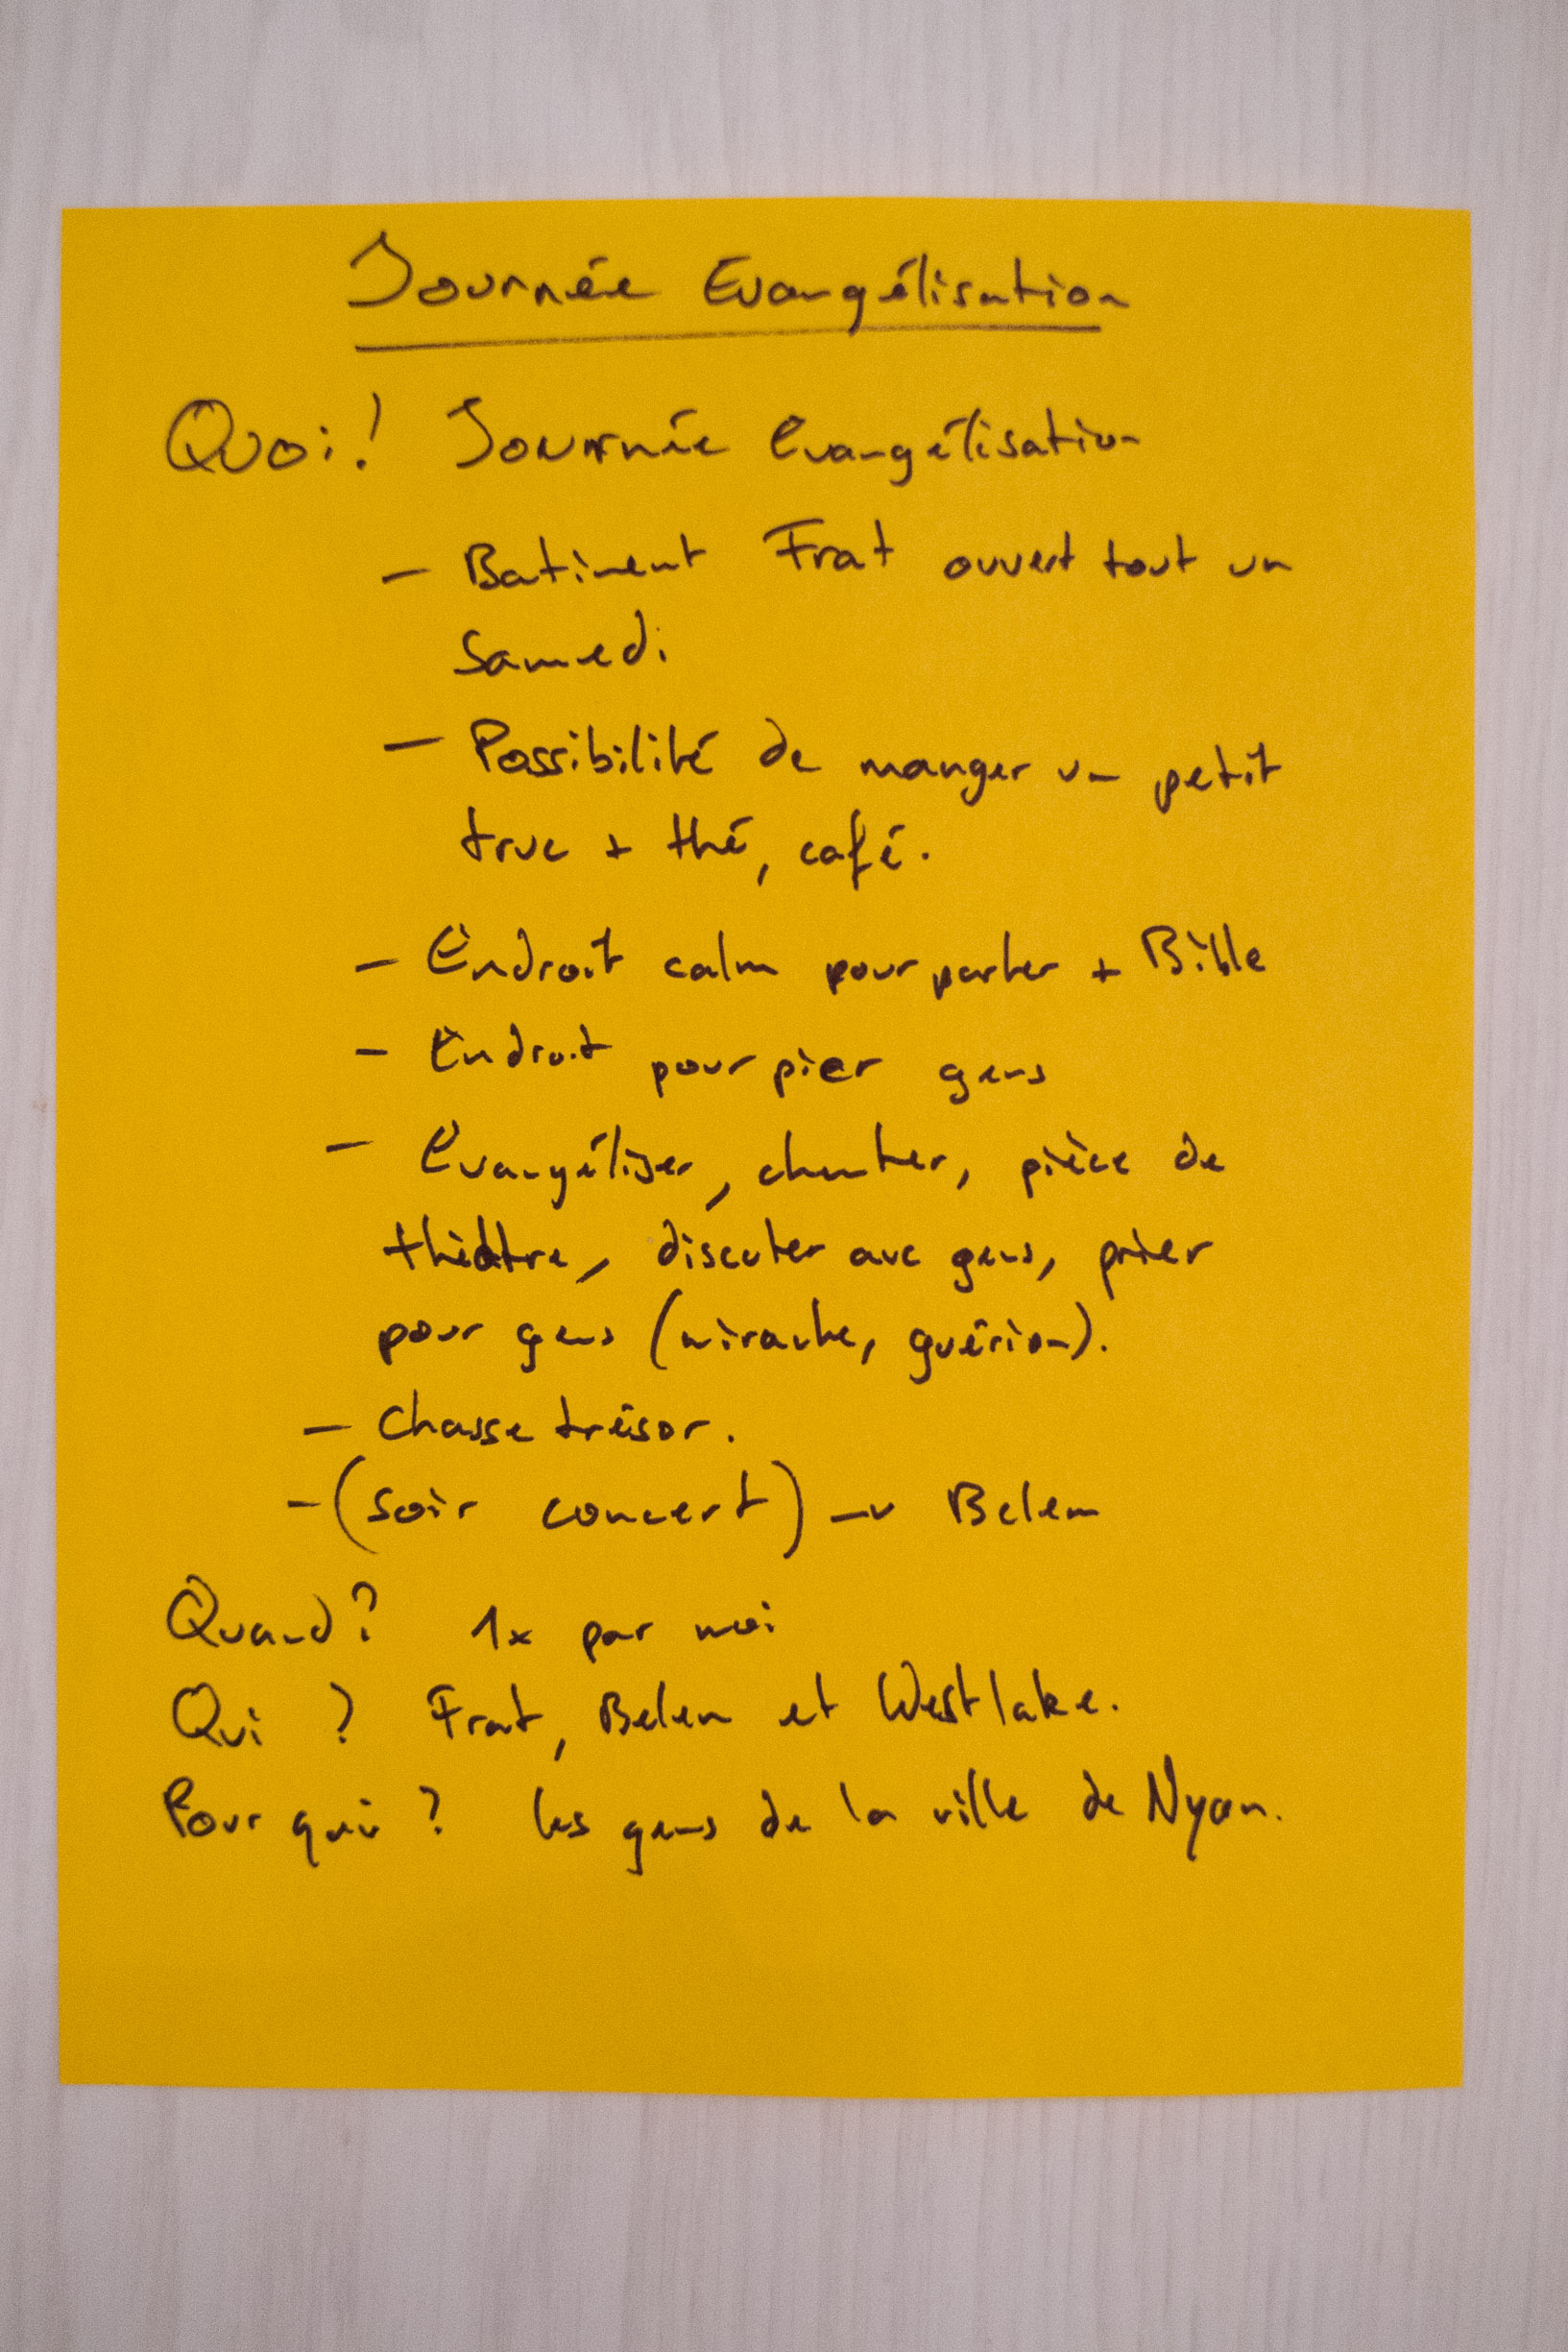 Journée Evangélisation
Quoi! Journée Evangélisation
- Batiment Frat ouvert tout un
Samedi
- Possibilité de manger un petit
truc + thé, café.
- Endroit calm pour parler + Bible
- Endroit pour pier gens
- Evangéliser, chanter, pièce de
théâtre, discuter avc gens, prier
pour gens (miracle, guérion).
- Chasse trésor.
- (soir concert) → Belem
Quand? 1x par moi
Qui ? Frat, Belem et Westlake.
Pour qui ? les gens de la ville de Nyon.